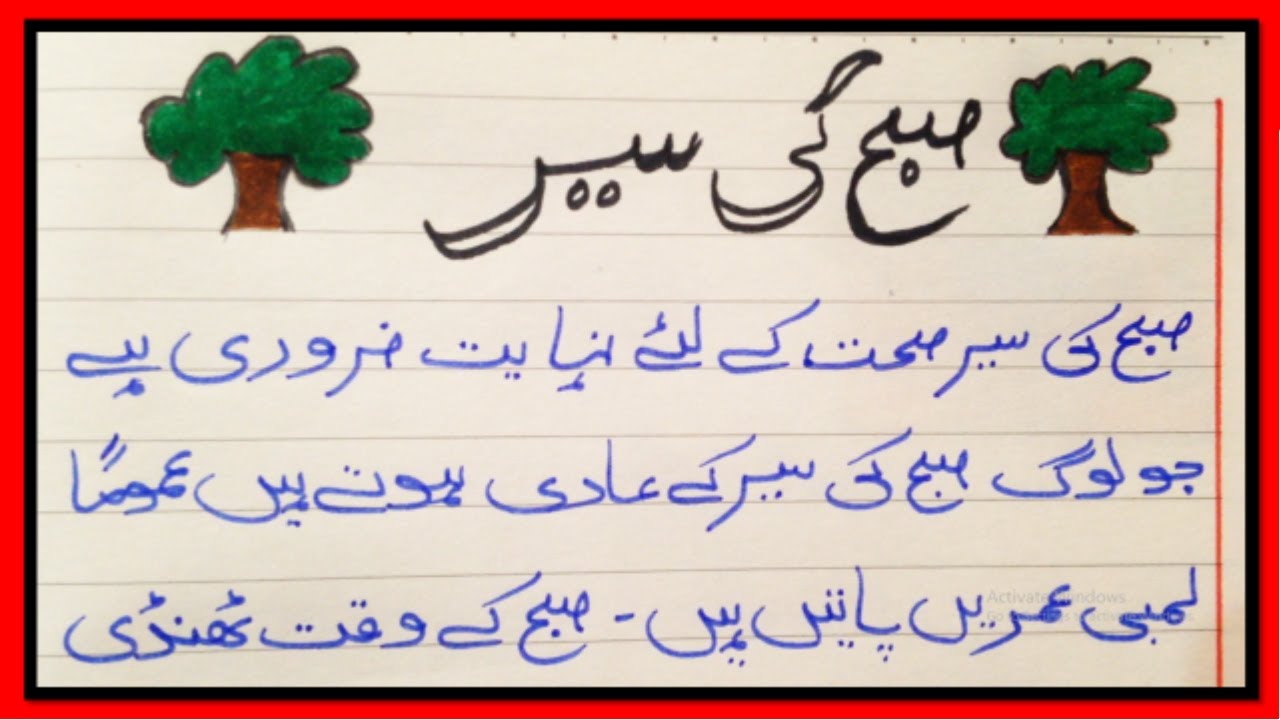 صبح کی سیر
صبح کی سیر صحت کے لئے نہایت ضروری ہے
جو لوگ صبح کی سیر کے عادی ہوتے ہیں عموماً
لمبی عمریں پاتیں ہیں - صبح کے وقت ٹھنڈی
Activate Windows
Go to Settings to activate Windows.